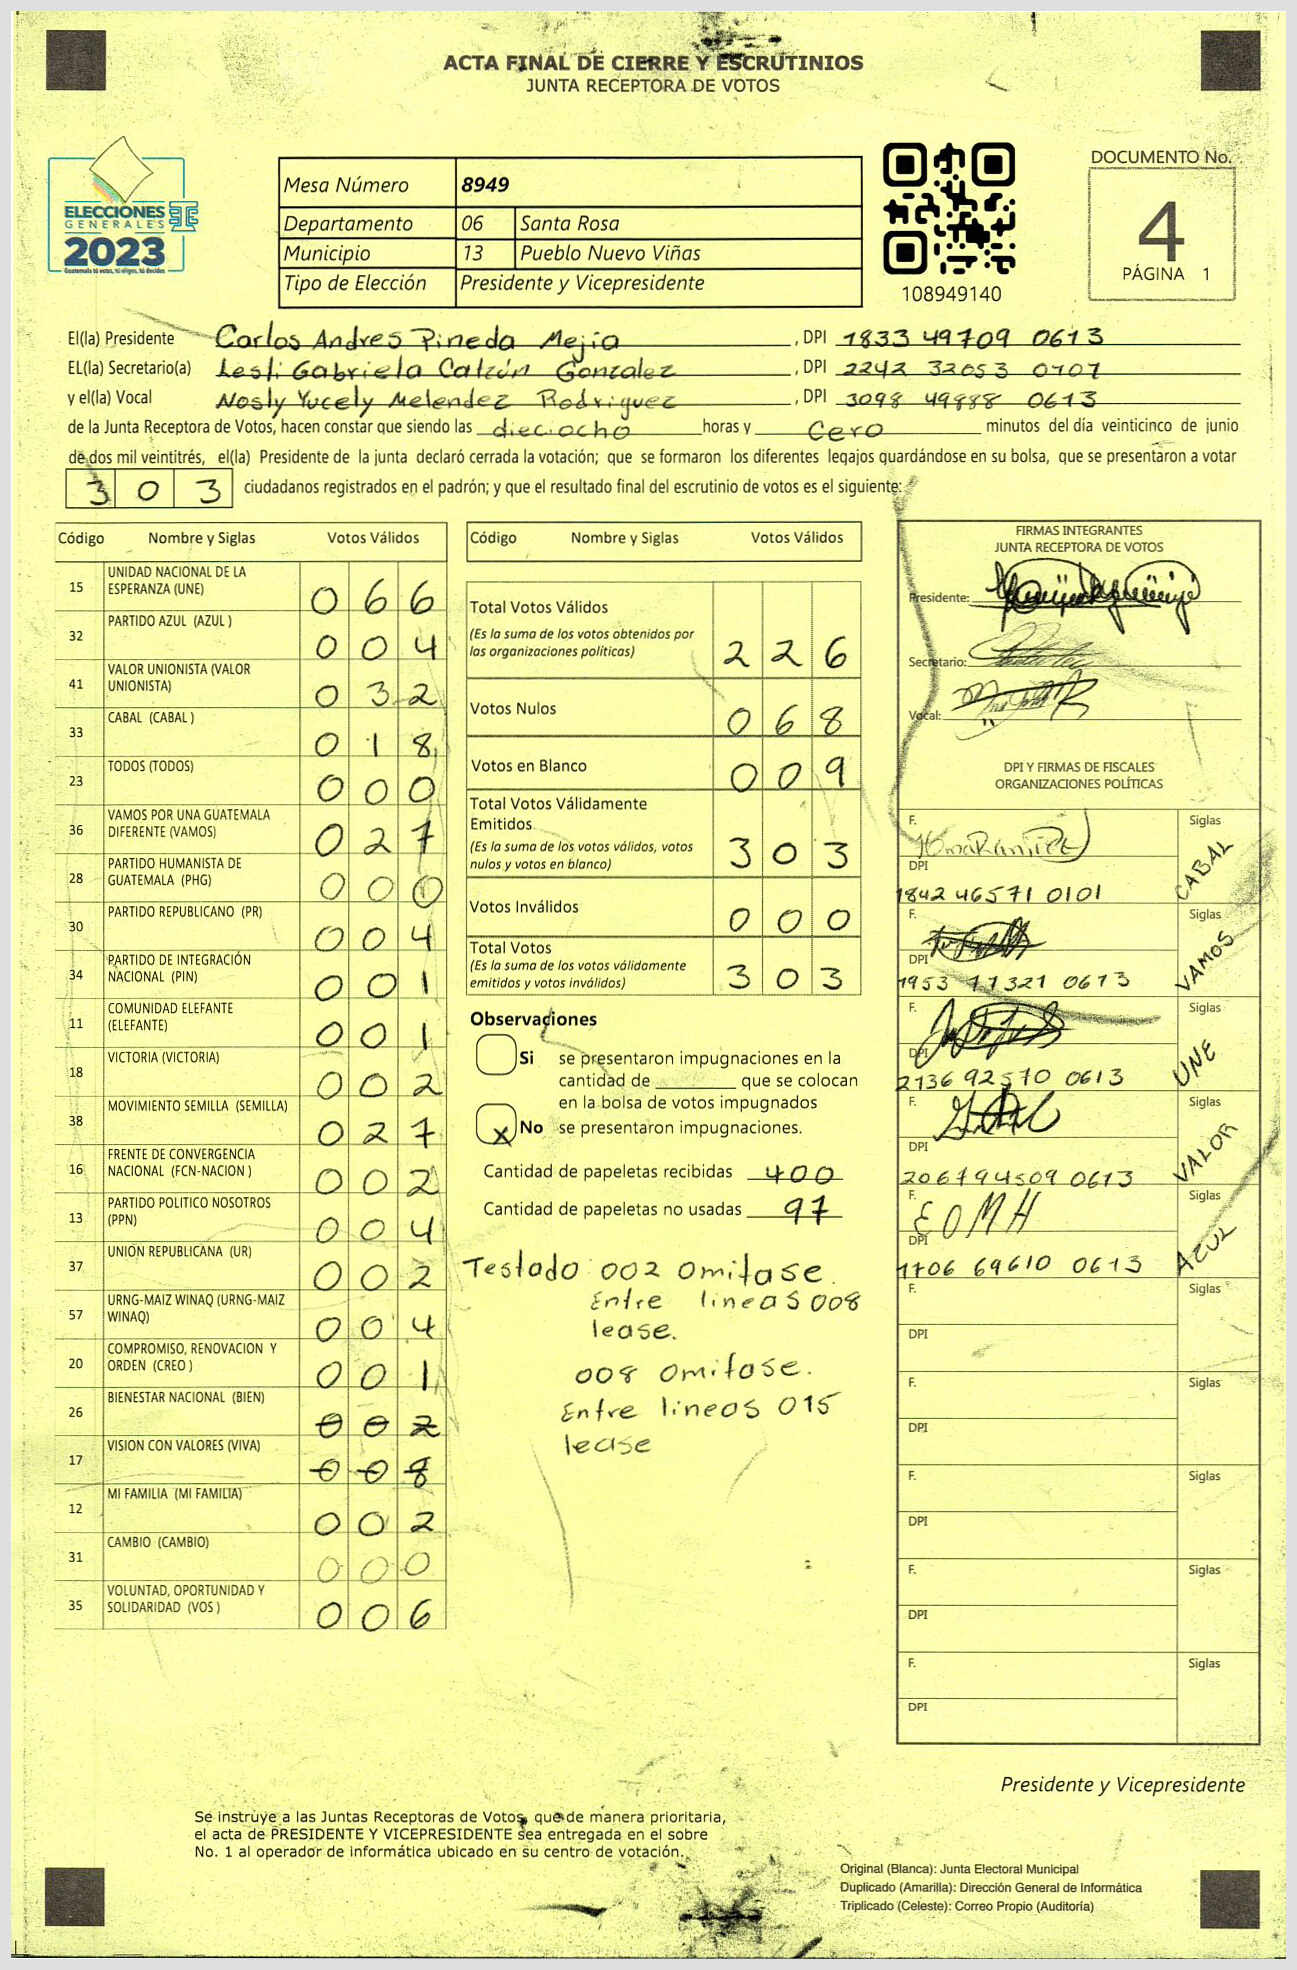 ACTA FINAL DE CIERRE Y ESCRUTINIOS
JUNTA RECEPTORA DE VOTOS
ELECCIONES
GENERALES
2023
Guatemala tú votas, tú eliges, tú decides
Mesa Número 8949
Departamento 06 Santa Rosa
Municipio 13 Pueblo Nuevo Viñas
Tipo de Elección Presidente y Vicepresidente
108949140
DOCUMENTO No.
4
PÁGINA 1
El(la) Presidente Carlos Andres Pineda Mejia , DPI 1833 49709 0613
EL(la) Secretario(a) Lesli Gabriela Calzún Gonzalez , DPI 2242 32053 0707
y el(la) Vocal Nosly Yucely Melendez Rodriguez , DPI 3098 49888 0613
de la Junta Receptora de Votos, hacen constar que siendo las dieciocho horas y Cero minutos del día veinticinco de junio
de dos mil veintitrés, el(la) Presidente de la junta declaró cerrada la votación; que se formaron los diferentes legajos guardándose en su bolsa, que se presentaron a votar
3 0 3 ciudadanos registrados en el padrón; y que el resultado final del escrutinio de votos es el siguiente:
Código Nombre y Siglas Votos Válidos
15 UNIDAD NACIONAL DE LA
ESPERANZA (UNE) 0 6 6
32 PARTIDO AZUL (AZUL ) 0 0 4
41 VALOR UNIONISTA (VALOR
UNIONISTA) 0 3 2
33 CABAL (CABAL ) 0 1 8
23 TODOS (TODOS) 0 0 0
36 VAMOS POR UNA GUATEMALA
DIFERENTE (VAMOS) 0 2 7
28 PARTIDO HUMANISTA DE
GUATEMALA (PHG) 0 0 0
30 PARTIDO REPUBLICANO (PR) 0 0 4
34 PARTIDO DE INTEGRACIÓN
NACIONAL (PIN) 0 0 1
11 COMUNIDAD ELEFANTE
(ELEFANTE) 0 0 1
18 VICTORIA (VICTORIA) 0 0 2
38 MOVIMIENTO SEMILLA (SEMILLA) 0 2 7
16 FRENTE DE CONVERGENCIA
NACIONAL (FCN-NACION ) 0 0 2
13 PARTIDO POLITICO NOSOTROS
(PPN) 0 0 4
37 UNION REPUBLICANA (UR) 0 0 2
57 URNG-MAIZ WINAQ (URNG-MAIZ
WINAQ) 0 0 4
20 COMPROMISO, RENOVACION Y
ORDEN (CREO ) 0 0 1
26 BIENESTAR NACIONAL (BIEN) 0 0 2
17 VISION CON VALORES (VIVA) 0 0 8
12 MI FAMILIA (MI FAMILIA) 0 0 2
31 CAMBIO (CAMBIO) 0 0 0
35 VOLUNTAD, OPORTUNIDAD Y
SOLIDARIDAD (VOS ) 0 0 6
Código Nombre y Siglas Votos Válidos
Total Votos Válidos
(Es la suma de los votos obtenidos por
las organizaciones políticas) 2 2 6
Votos Nulos 0 6 8
Votos en Blanco 0 0 9
Total Votos Válidamente
Emitidos
(Es la suma de los votos válidos, votos
nulos y votos en blanco) 3 0 3
Votos Inválidos 0 0 0
Total Votos
(Es la suma de los votos válidamente
emitidos y votos inválidos) 3 0 3
Observaciones
Si se presentaron impugnaciones en la
cantidad de ________ que se colocan
en la bolsa de votos impugnados
x No se presentaron impugnaciones.
Cantidad de papeletas recibidas 400
Cantidad de papeletas no usadas 97
Testado 002 omitase.
Entre lineas 008
lease.
008 omitase.
Entre lineas 015
lease
FIRMAS INTEGRANTES
JUNTA RECEPTORA DE VOTOS
Presidente:
Secretario:
Vocal:
DPI Y FIRMAS DE FISCALES
ORGANIZACIONES POLÍTICAS
F. Siglas
DPI CABAL
1842 46571 0101
F. Siglas
DPI VAMOS
1953 11321 0613
F. Siglas
DPI UNE
2136 92570 0613
F. Siglas
DPI VALOR
2067 94509 0613
F. EOMH Siglas
DPI AZUL
1706 69610 0613
F. Siglas
DPI
F. Siglas
DPI
F. Siglas
DPI
F. Siglas
DPI
F. Siglas
DPI
Presidente y Vicepresidente
Se instruye a las Juntas Receptoras de Votos, que de manera prioritaria,
el acta de PRESIDENTE Y VICEPRESIDENTE sea entregada en el sobre
No. 1 al operador de informática ubicado en su centro de votación.
Original (Blanca): Junta Electoral Municipal
Duplicado (Amarilla): Dirección General de Informática
Triplicado (Celeste): Correo Propio (Auditoría)